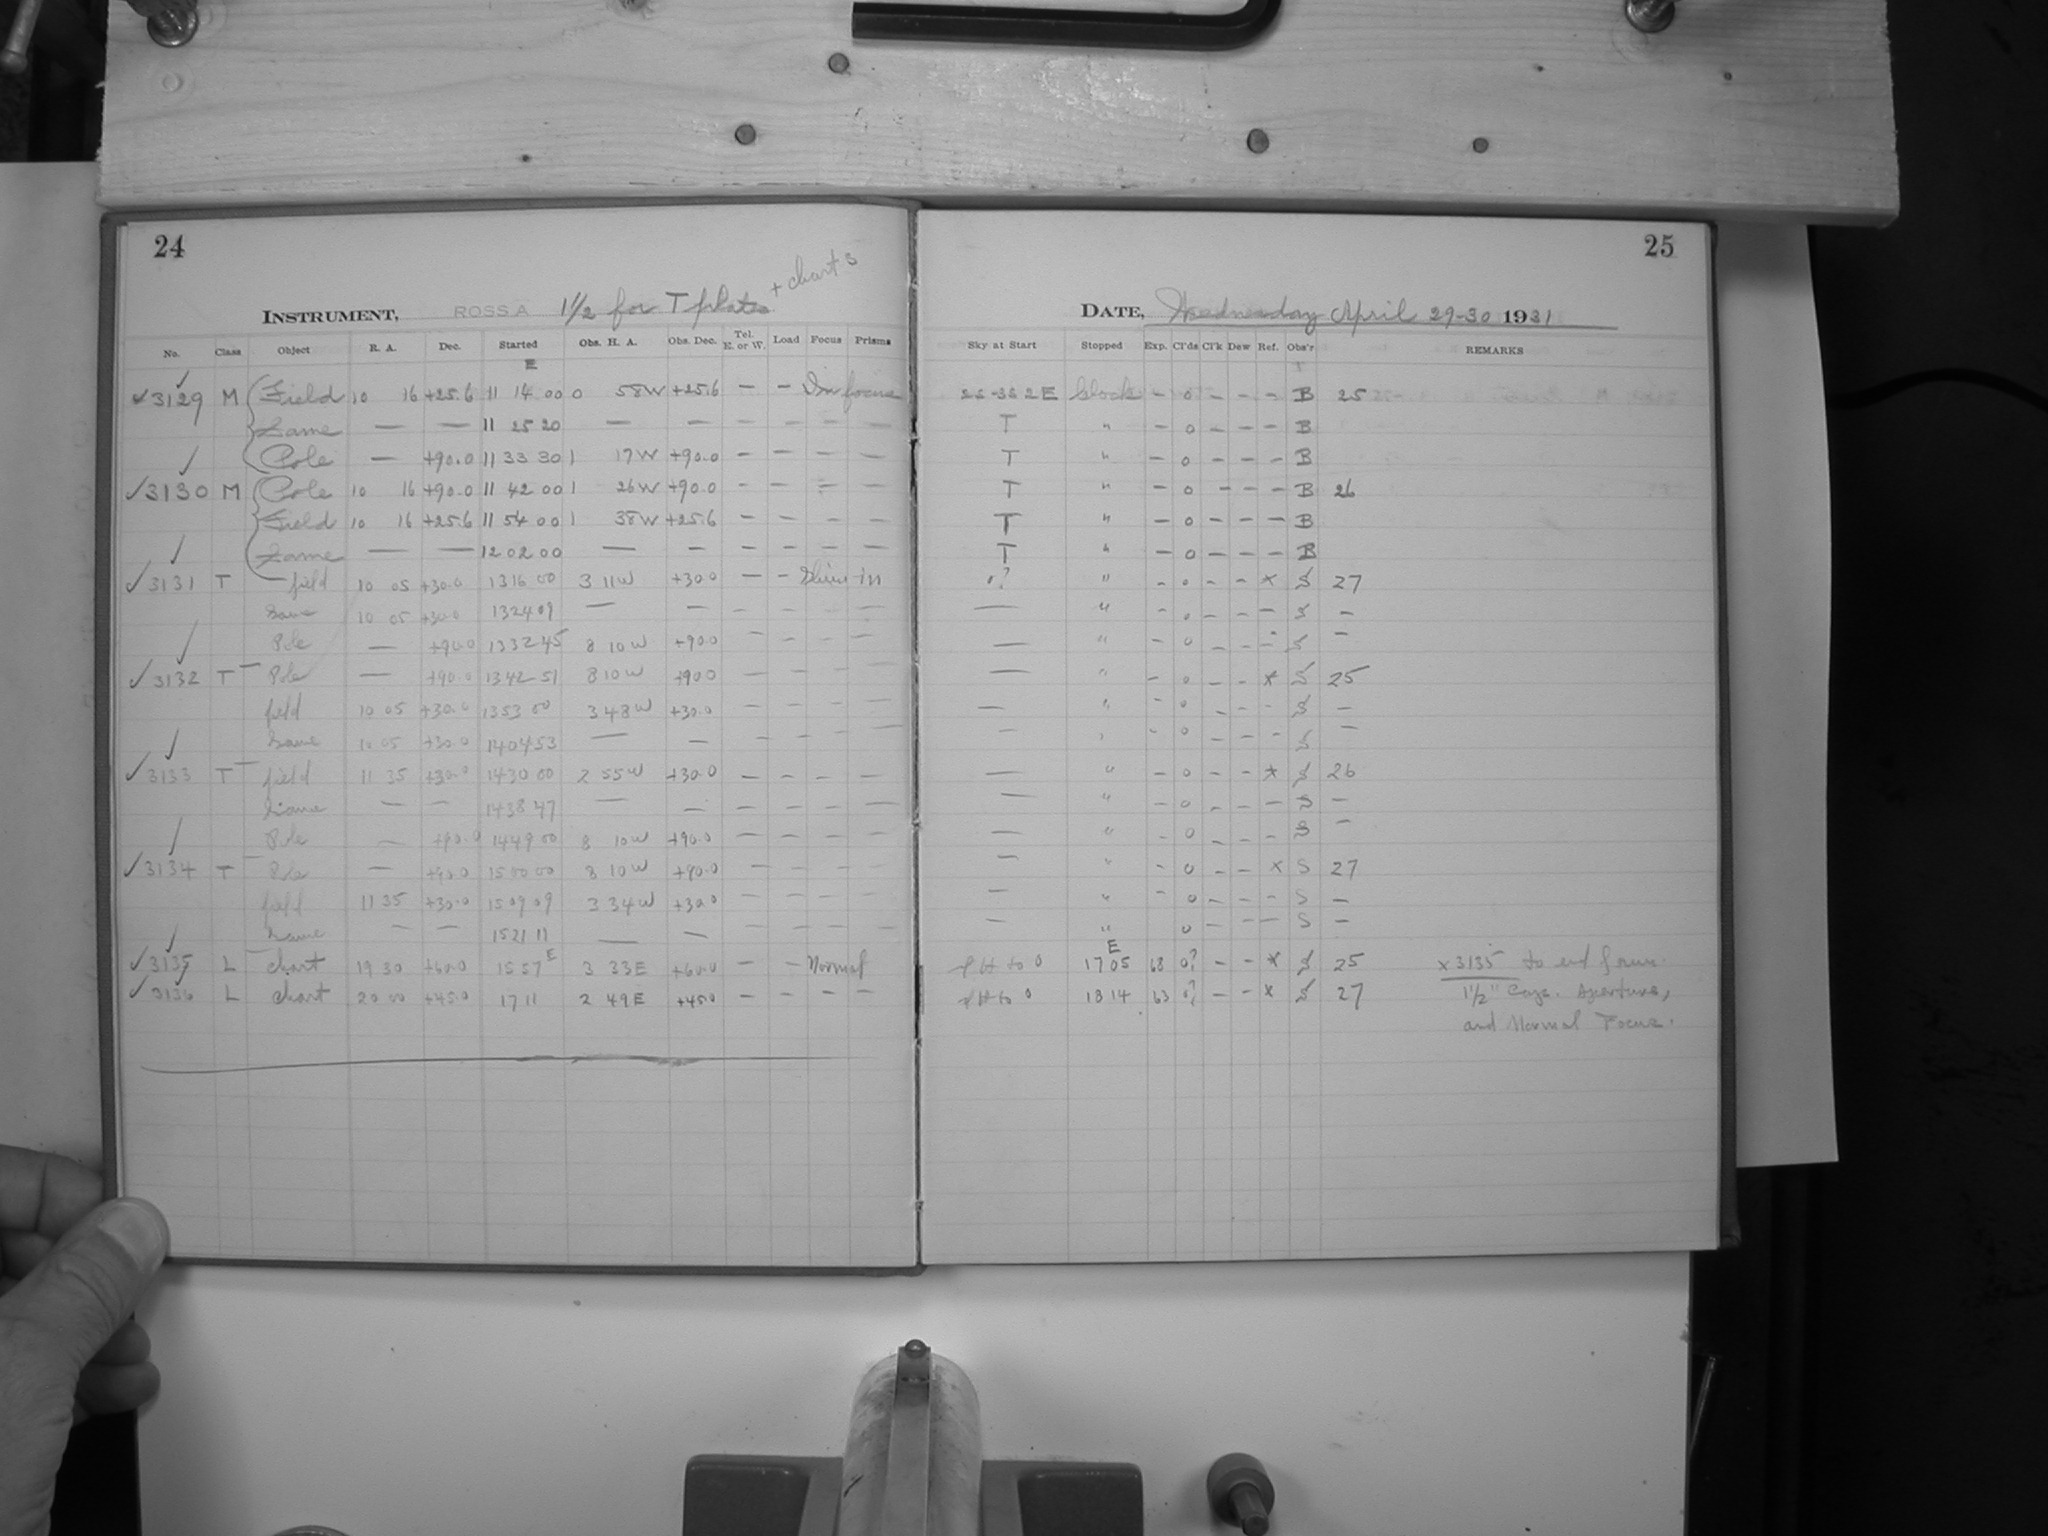 24
25
+ charts
INSTRUMENT, ROSS A 1½ for T plates
DATE, Wednesday April 29-30 1931
No. Class Object R. A. Dec. Started Obs. H. A. Obs. Dec. Tel. E. or W. Load Focus Prisms Sky at Start Stopped Exp. Cl'ds Cl'k Dew Ref. Obs'r REMARKS
E
✓3129 M Field 10 16 +25.6 11 14 00 0 58W +25.6 — — In focus 2E Clock - 0 - - - B 25
Same — — 11 25 20 — — — — — — T " - 0 - - - B
Pole — +90.0 11 33 30 1 17W +90.0 — — — — T " - 0 - - - B
✓3130 M Pole 10 16 +90.0 11 42 00 1 26W +90.0 — — — — T " - 0 - - - B 26
Field 10 16 +25.6 11 54 00 1 38W +25.6 — — — — T " - 0 - - - B
Same — — 12 02 00 — — — — — — T " - 0 - - - B
✓3131 T field 10 05 +30.0 13 16 00 3 11W +30.0 — — in 0? " - 0 - - x S 27
Same 10 05 +30.0 13 24 09 — — — — — — — " - 0 - - - S —
Pole — +90.0 13 32 45 8 10W +90.0 — — — — " - 0 - - - S —
✓3132 T Pole — +90.0 13 42 51 8 10W +90.0 — — — — " - 0 - - x S 25
field 10 05 +30.0 13 53 00 3 48W +30.0 — — — — " - 0 - - - S —
Same 10 05 +30.0 14 04 53 — — — — — — " - 0 S —
✓3133 T field 11 35 +30.0 14 30 00 2 55W +30.0 — — — — — " - 0 - - x S 26
Same — — 14 38 47 — — — — — — — " - 0 - - - S —
Pole — +90.0 14 49 00 8 10W +90.0 — — — — — " - 0 - - - S —
✓3134 T Pole — +90.0 15 00 00 8 10W +90.0 — — — — — " - 0 - - x S 27
field 11 35 +30.0 15 09 09 3 34W +30.0 — — — — — " - 0 - - - S —
Same — — 15 21 11 — — — — — — — " 0 - - - S —
✓3135 L chart 19 30 +60.0 15 57 E 3 33E +60.0 — — Normal to 0 E 17 05 68 0? - - x S 25 x 3135 to end
✓3136 L chart 20 00 +45.0 17 11 2 49E +45.0 — — — — to 0 18 14 63 0? - - x S 27 1½" Caps. Aperture,
and Normal Focus.